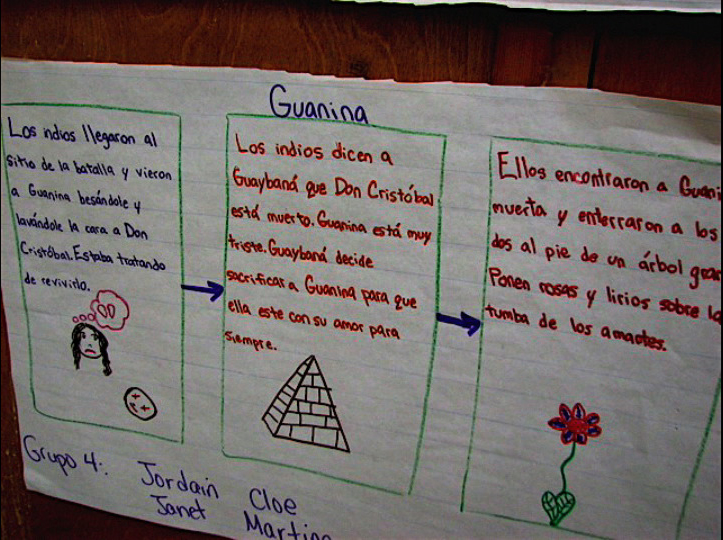 Guanina
Los indios llegaron al
sitio de la batalla y vieron
a Guanina besándole y
lavándole la cara a Don
Cristóbal. Estaba tratando
de revivirlo.
Los indios dicen a
Guaybaná que Don Cristóbal
está muerto. Guanina está muy
triste. Guaybaná decide
sacrificar a Guanina para que
ella este con su amor para
siempre.
Ellos encontraron a Guani
muerta y enterraron a los
dos al pie de un árbol gran
Ponen rosas y lirios sobre la
tumba de los amantes.
Grupo 4:
Jordain Cloe
Janet Martin